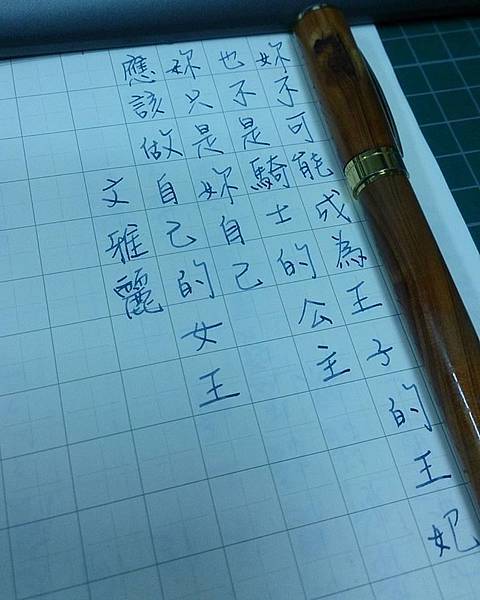 妳不可能成為王子的王妃
也不是騎士的公主
妳只是妳自己
應該做自己的女王
文雅麗